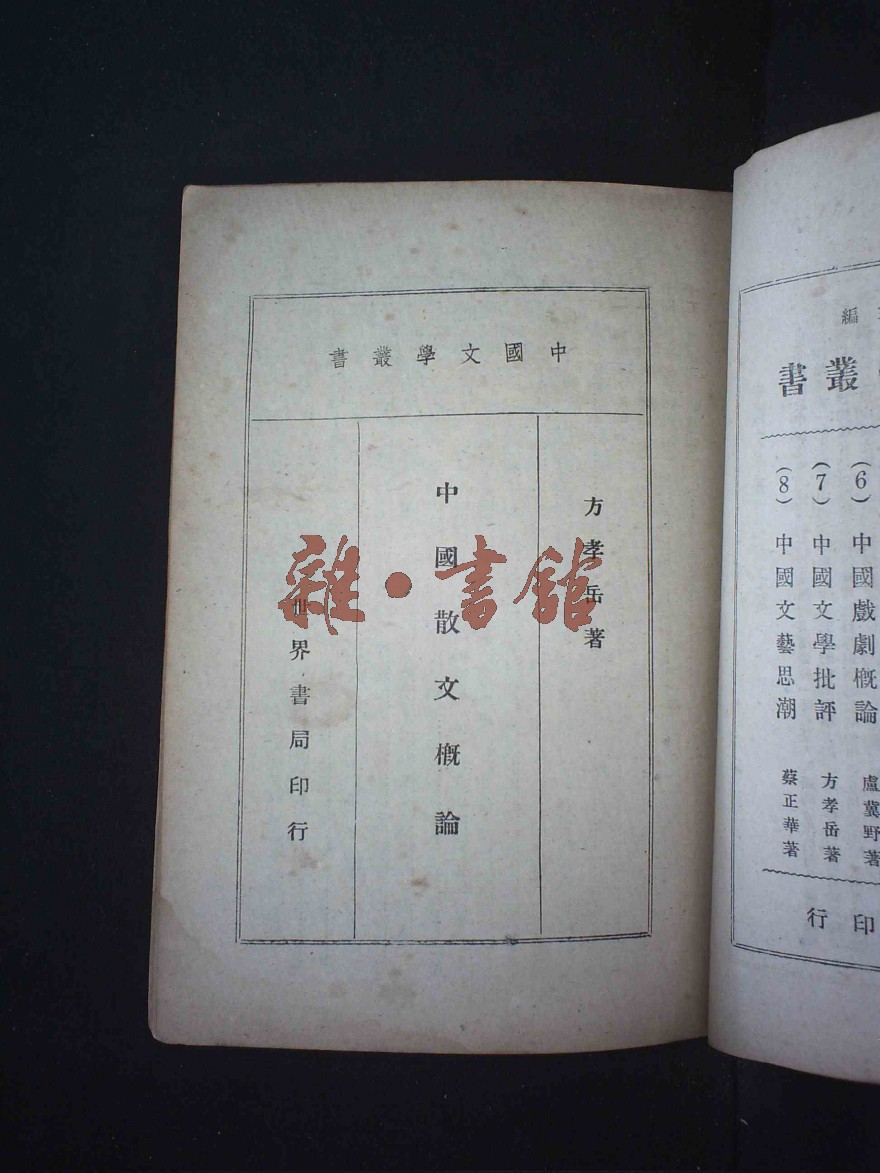 中國文學叢書
方孝岳著
中國散文概論
世界書局印行
雜·書館
編
叢書
(6) 中國戲劇概論 盧冀野著
(7) 中國文學批評 方孝岳著
(8) 中國文藝思潮 蔡正華著
印行